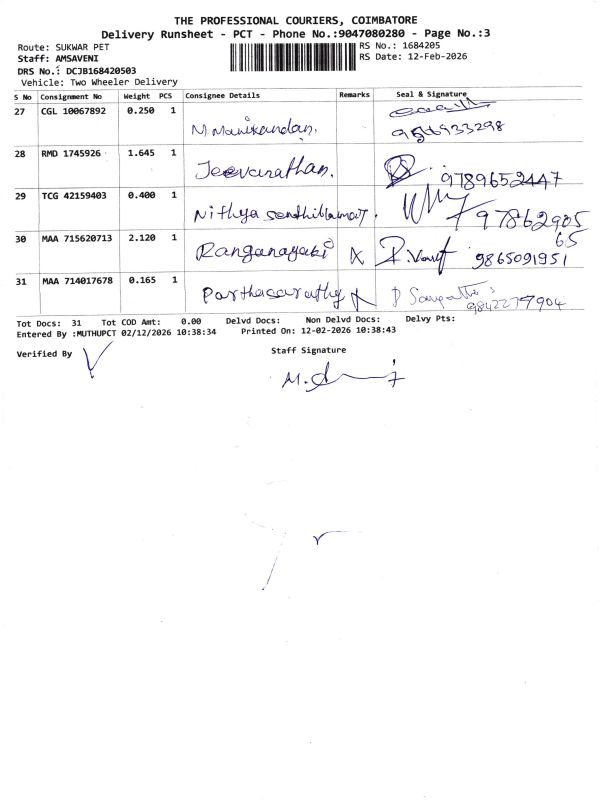 THE PROFESSIONAL COURIERS, COIMBATORE
Delivery Runsheet - PCT - Phone No.:9047080280 - Page No.:3
Route: SUKWAR PET
RS No.: 1684205
Staff: AMSAVENI
RS Date: 12-Feb-2026
DRS No.: DCJB168420503
Vehicle: Two Wheeler Delivery
S No Consignment No Weight PCS Consignee Details Remarks Seal & Signature
27 CGL 10067892 0.250 1 M. Manikandan.
28 RMD 1745926 1.645 1 Jeevanathan. 9789652447
29 TCG 42159403 0.400 1 Nithya senthilkumar. 97862905
65
30 MAA 715620713 2.120 1 Ranganayaki 9865091951
31 MAA 714017678 0.165 1 Parthasarathy
9842277904
Tot Docs: 31 Tot COD Amt: 0.00 Delvd Docs: Non Delvd Docs: Delvy Pts:
Entered By :MUTHUPCT 02/12/2026 10:38:34 Printed On: 12-02-2026 10:38:43
Verified By
Staff Signature